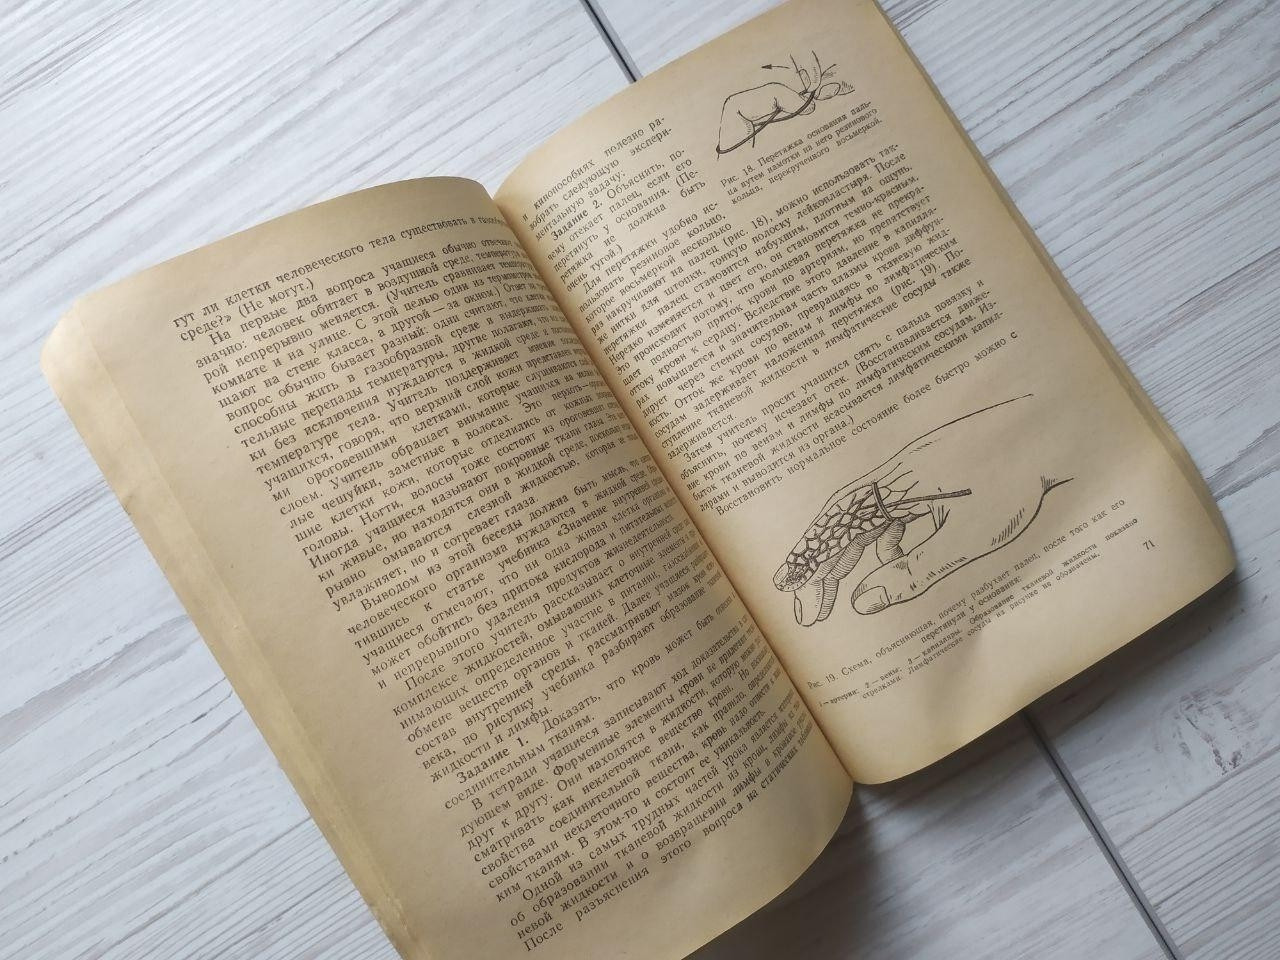 гут ли клетки человеческого тела существовать в
среде?» (Не могут.)
На первые два вопроса учащиеся обычно отвечают
значно: человек обитает в воздушной среде, температура
рой непрерывно меняется. (Учитель сравнивает температуру
комнате и на улице. С этой целью один из термометров
щают на стене класса, а другой — за окном.) Ответ на
вопрос обычно бывает разный: одни считают, что клетки
способны жить в газообразной среде и выдерживать
тельные перепады температуры, другие полагают, что все
ки без исключения нуждаются в жидкой среде и постоянной
температуре тела. Учитель поддерживает мнение последних
учащихся, говоря, что верхний слой кожи представлен мертвы-
ми ороговевшими клетками, которые слущиваются
слоем. Учитель обращает внимание учащихся на
лые чешуйки, заметные в волосах. Это перхоть —
шие клетки кожи, которые отделились от кожных
головы. Ногти, волосы тоже состоят из ороговевших
Иногда учащиеся называют покровные ткани глаза. Эти
ки живые, но находятся они в жидкой среде, поскольку
рывно омываются слезной жидкостью, которая не только
увлажняет, но и согревает глаза.
Выводом из этой беседы должна быть мысль, что
человеческого организма нуждаются в жидкой среде.
тившись к статье учебника «Значение внутренней среды»,
учащиеся отмечают, что ни одна живая клетка организма не
может обойтись без притока кислорода и питательных веществ
и непрерывного удаления продуктов жизнедеятельности.
После этого учитель рассказывает о внутренней среде как
комплексе жидкостей, омывающих клеточные элементы и при-
нимающих определенное участие в питании, газообмене и
обмене веществ органов и тканей. Далее учащиеся
состав внутренней среды, рассматривают мазок крови
века, по рисунку учебника разбирают образование тканевой
жидкости и лимфы.
Задание 1. Доказать, что кровь может быть отнесена к
соединительным тканям.
В тетради учащиеся записывают ход доказательства в сле-
дующем виде. Форменные элементы крови не прилегают тесно
друг к другу. Они находятся в жидкости, которую можно рас-
сматривать как неклеточное вещество крови. Но поскольку
свойства соединительной ткани, как правило, определяются
свойствами неклеточного вещества, кровь надо отнести к таким
ким тканям. В этом-то и состоит ее уникальность.
Одной из самых трудных частей урока является
об образовании тканевой жидкости из крови, лимфы из тка-
невой жидкости и о возвращении лимфы в кровяное русло.
После разъяснения этого вопроса на статических таблицах
и кинопособиях полезно ра-
зобрать следующую экспери-
ментальную задачу.
Задание 2. Объяснить, по-
чему отекает палец, если его
перетянуть у основания. (Пе-
ретяжка не должна быть
очень тугой.)
Для перетяжки удобно ис-
пользовать резиновое кольцо,
которое восьмеркой несколько
раз накручивают на палец (рис. 18), можно использовать так-
же нитки для штопки, тонкую полоску лейкопластыря. После
перетяжки палец становится набухшим, плотным на ощупь.
Нередко изменяется и цвет его, он становится темно-красным.
Это происходит потому, что кольцевая перетяжка не прекра-
щает полностью приток крови по артериям, но препятствует
оттоку крови к сердцу. Вследствие этого давление в капилля-
рах повышается и значительная часть плазмы крови диффун-
дирует через стенки сосудов, превращаясь в тканевую жид-
кость. Отток же крови по венам и лимфы по лимфатическим
сосудам задерживает наложенная перетяжка (рис. 19). По-
ступление тканевой жидкости в лимфатические сосуды также
задерживается.
Затем учитель просит учащихся снять с пальца повязку и
объяснить, почему исчезает отек. (Восстанавливается движе-
ние крови по венам и лимфы по лимфатическим сосудам. Из-
быток тканевой жидкости всасывается лимфатическими капил-
лярами и выводится из органа.)
Восстановить нормальное состояние более быстро можно с
Рис. 18. Перетяжка основания паль-
ца путем намотки на него резинового
кольца, перекрученного восьмеркой.
Рис. 19. Схема, объясняющая, почему разбухает палец, после того как его
перетянули у основания:
1 — артерии; 2 — вены; 3 — капилляры. Образование тканевой жидкости показано
стрелками. Лимфатические сосуды на рисунке не обозначены.
71